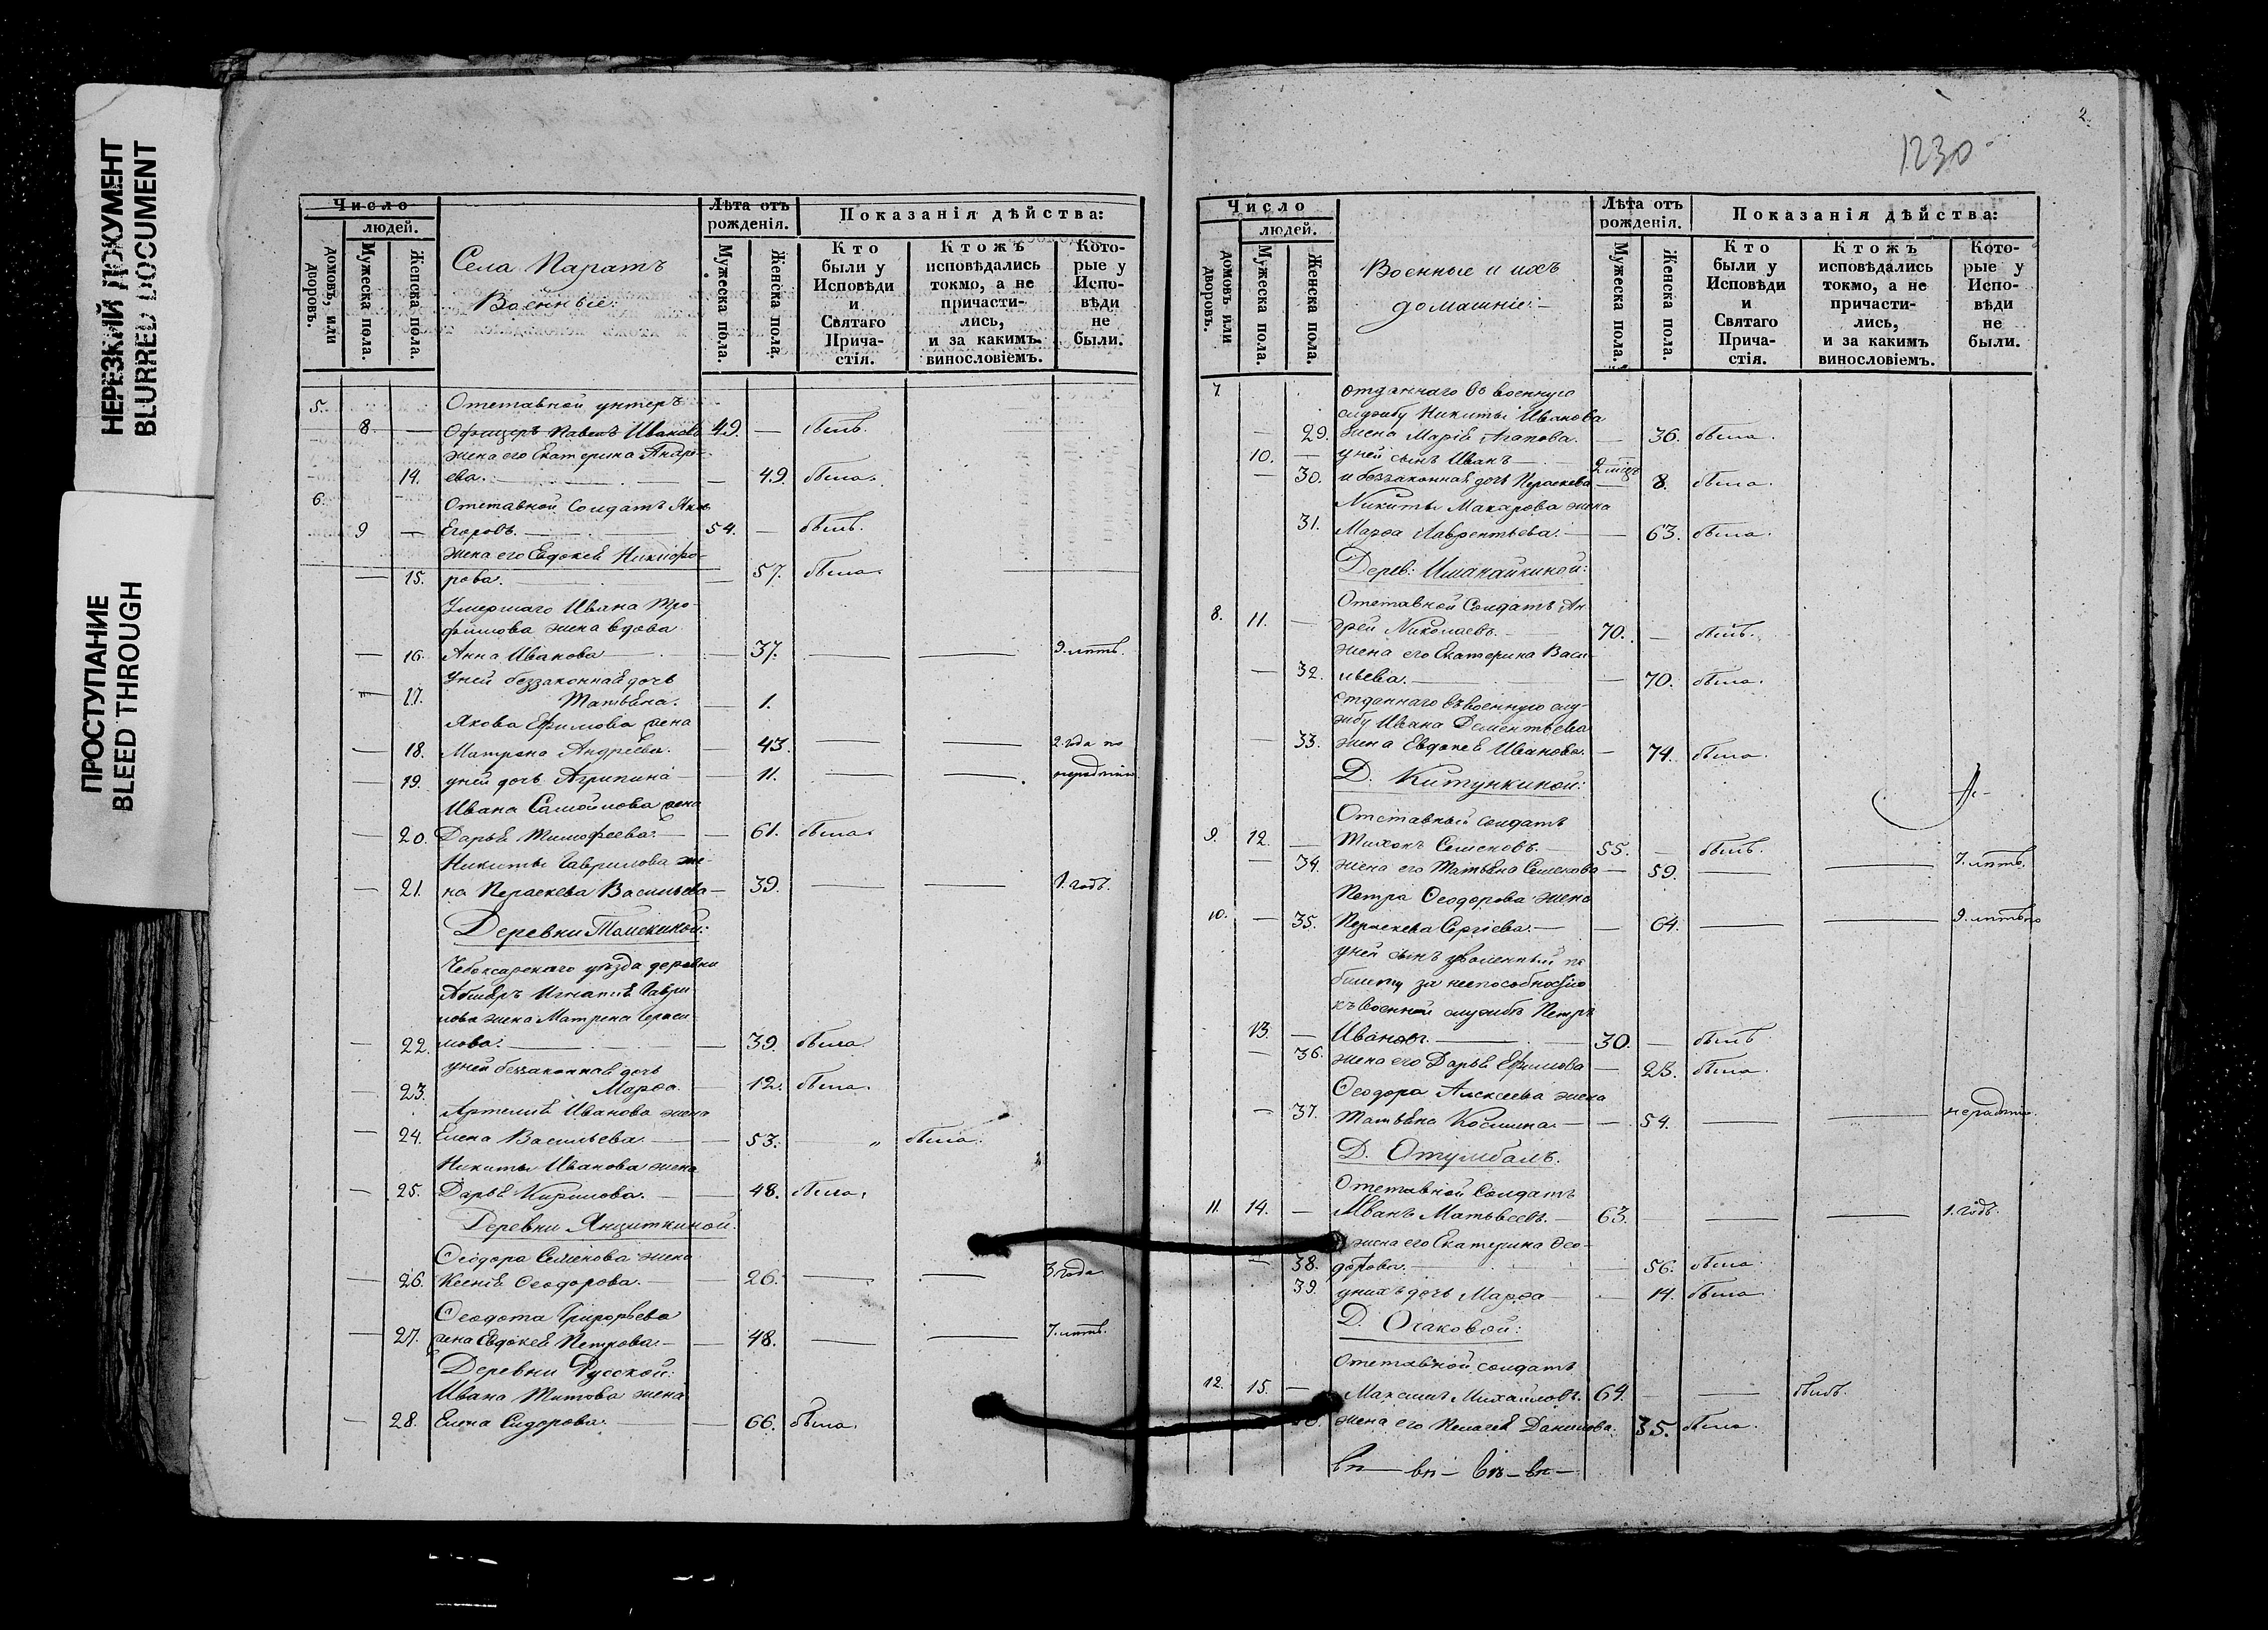 НЕРЕЗКИЙ ДОКУМЕНТ
BLURRED DOCUMENT
ПРОСТУПАНИЕ
BLEED THROUGH
Число
людей.
домовъ, или дворовъ.
Мужеска пола.
Женска пола.
Села Паратъ
Военные:
Лѣта отъ рожденія.
Мужеска пола.
Женска пола.
Показанія дѣйства:
Кто были у Исповѣди и Святаго Прича-стія.
Ктожъ исповѣдались токмо, а не причасти-лись, и за какимъ винословіемъ.
Кото-рые у Испо-вѣди не были.
5. Отставной унтеръ
8. — Офицеръ Павелъ Ивановъ 49. — былъ.
жена его Екатерина Андре-
14. ева. — 49. была.
6. Отставной Солдатъ
9 — Егоровъ. 54. — былъ.
жена его Евдокея Никифо-
— 15. рова. — 57. была.
Умершаго Ивана Тро-
фимова жена вдова
— 16. Анна Иванова — 37. — — 9. лѣтъ.
Уней беззаконная дочь
— 17. Татьяна. — 1.
Якова Ефимова жена
— 18. Матрена Андреева. — 43. — — 2. года по
— 19. уней дочь Агрипина — 11. — —
Ивана Самойлова жена
— 20. Дарья Тимофеева. — 61. была.
Никиты Гаврилова же-
— 21. на Параскева Васильева — 39. — — 1. годъ.
Деревни
Чебоксарскаго уѣзда деревни
Игнатія Гаври-
лова жена Матрена Гераси-
— 22. мова. — 39. была.
уней беззаконная дочь
23. Марѳа. — 12. была.
Артемія Иванова жена
— 24. Елена Васильева. — 53. „ была.
Никиты Иванова жена
— 25. Дарья Кирилова. — 48. была.
Деревни
Ѳеодора Семенова жена
— 26. Ксенія Ѳеодорова. — 26. — — 3 года.
Ѳеодота Григорьева
— 27. жена Евдокея Петрова. — 48. — — 7. лѣтъ.
Деревни Русской:
Ивана Титова жена
— 28. Елена Сидорова. — 66. была.
2.
1230
Число
людей.
домовъ или дворовъ.
Мужеска пола.
Женска пола.
Военные и ихъ
домашніе:
Лѣта отъ рожденія.
Мужеска пола.
Женска пола.
Показанія дѣйства:
Кто были у Исповѣди и Святаго Прича-стія.
Ктожъ исповѣдались токмо, а не причасти-лись, и за какимъ винословіемъ.
Кото-рые у Испо-вѣди не были.
7. отданнаго въ военную
службу Никиты Иванова
— 29. жена Марія Агапова. — 36. была.
10. — уней сынъ Иванъ
— 30. и беззаконная дочь Параскева — 8. была.
Никиты Макарова жена
31. Марѳа Лаврентьева. — 63. была.
Дерев:
8. 11. — Отставной Солдатъ Ан-
дрей Николаевъ. 70. — былъ.
жена его Екатерина Васи-
— 32. льева. — 70. была.
отданнаго въ военную слу-
жбу Ивана Дементьева
— 33. жена Евдокея Иванова. — 74. была.
Д. Китункиной:
Отставный солдатъ
9. 12. — Тихонъ Семеновъ. 55. — былъ.
— 34. жена его Татьяна Семенова — 59. — — 7. лѣтъ.
Петра Ѳеодорова жена
10. — 35. Параскева Сергіева. — 64. — — 9. лѣтъ по
уней сынъ уволенный по
билету за неспособностію
къ военной службѣ Петръ
13. — Ивановъ. 30. — былъ
— 36. жена его Дарья Ефимова — 23. была.
Ѳеодора Алексеева жена
— 37. Татьяна Космина. — 54. — —
Д. Отумбалъ.
Отставной Солдатъ
11. 14. — Иванъ Матвеевъ. 63. — — — 1. годъ.
жена его Екатерина Ѳео-
— 38. дорова. — 56. была.
39. унихъ дочь Марѳа — 14. была.
Д. Очаковой:
Отставной солдатъ
12. 15. — Максимъ Михайловъ. 64. — — былъ.
жена его Пелагея Данилова. 35. была.